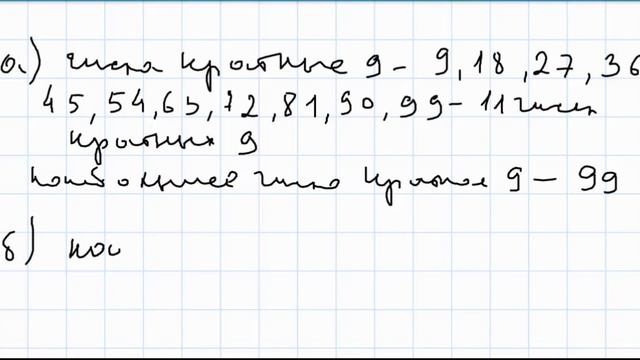 а) числа кратные 9 - 9, 18, 27, 36
45, 54, 63, 72, 81, 90, 99 - 11 чисел
кратных 9
наибольшее число кратное 9 - 99
б) нос